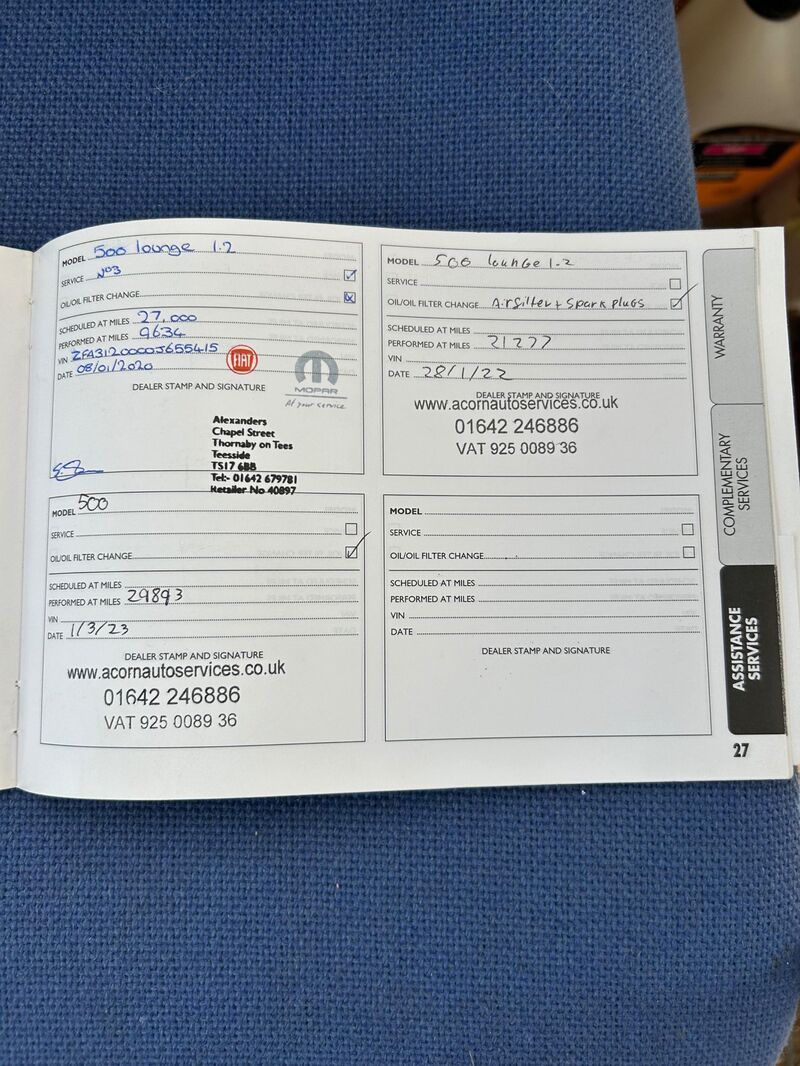 MODEL 500 lounge 1.2
SERVICE No3
OIL/OIL FILTER CHANGE
SCHEDULED AT MILES 27,000
PERFORMED AT MILES 9634
VIN ZFA3120000J655415
DATE 08/01/2020
FIAT
MOPAR
At your service.
DEALER STAMP AND SIGNATURE
Alexanders
Chapel Street
Thornaby on Tees
Teesside
TS17 6BB
Tel:- 01642 679781
Retailer No 40897
MODEL 500 lounge 1.2
SERVICE
OIL/OIL FILTER CHANGE Airfilter + Spark plugs
SCHEDULED AT MILES
PERFORMED AT MILES 21277
VIN
DATE 28/1/22
DEALER STAMP AND SIGNATURE
www.acornautoservices.co.uk
01642 246886
VAT 925 0089 36
MODEL 500
SERVICE
OIL/OIL FILTER CHANGE
SCHEDULED AT MILES
PERFORMED AT MILES 29893
VIN
DATE 1/3/23
DEALER STAMP AND SIGNATURE
www.acornautoservices.co.uk
01642 246886
VAT 925 0089 36
MODEL
SERVICE
OIL/OIL FILTER CHANGE
SCHEDULED AT MILES
PERFORMED AT MILES
VIN
DATE
DEALER STAMP AND SIGNATURE
WARRANTY
COMPLEMENTARY
SERVICES
ASSISTANCE
SERVICES
27